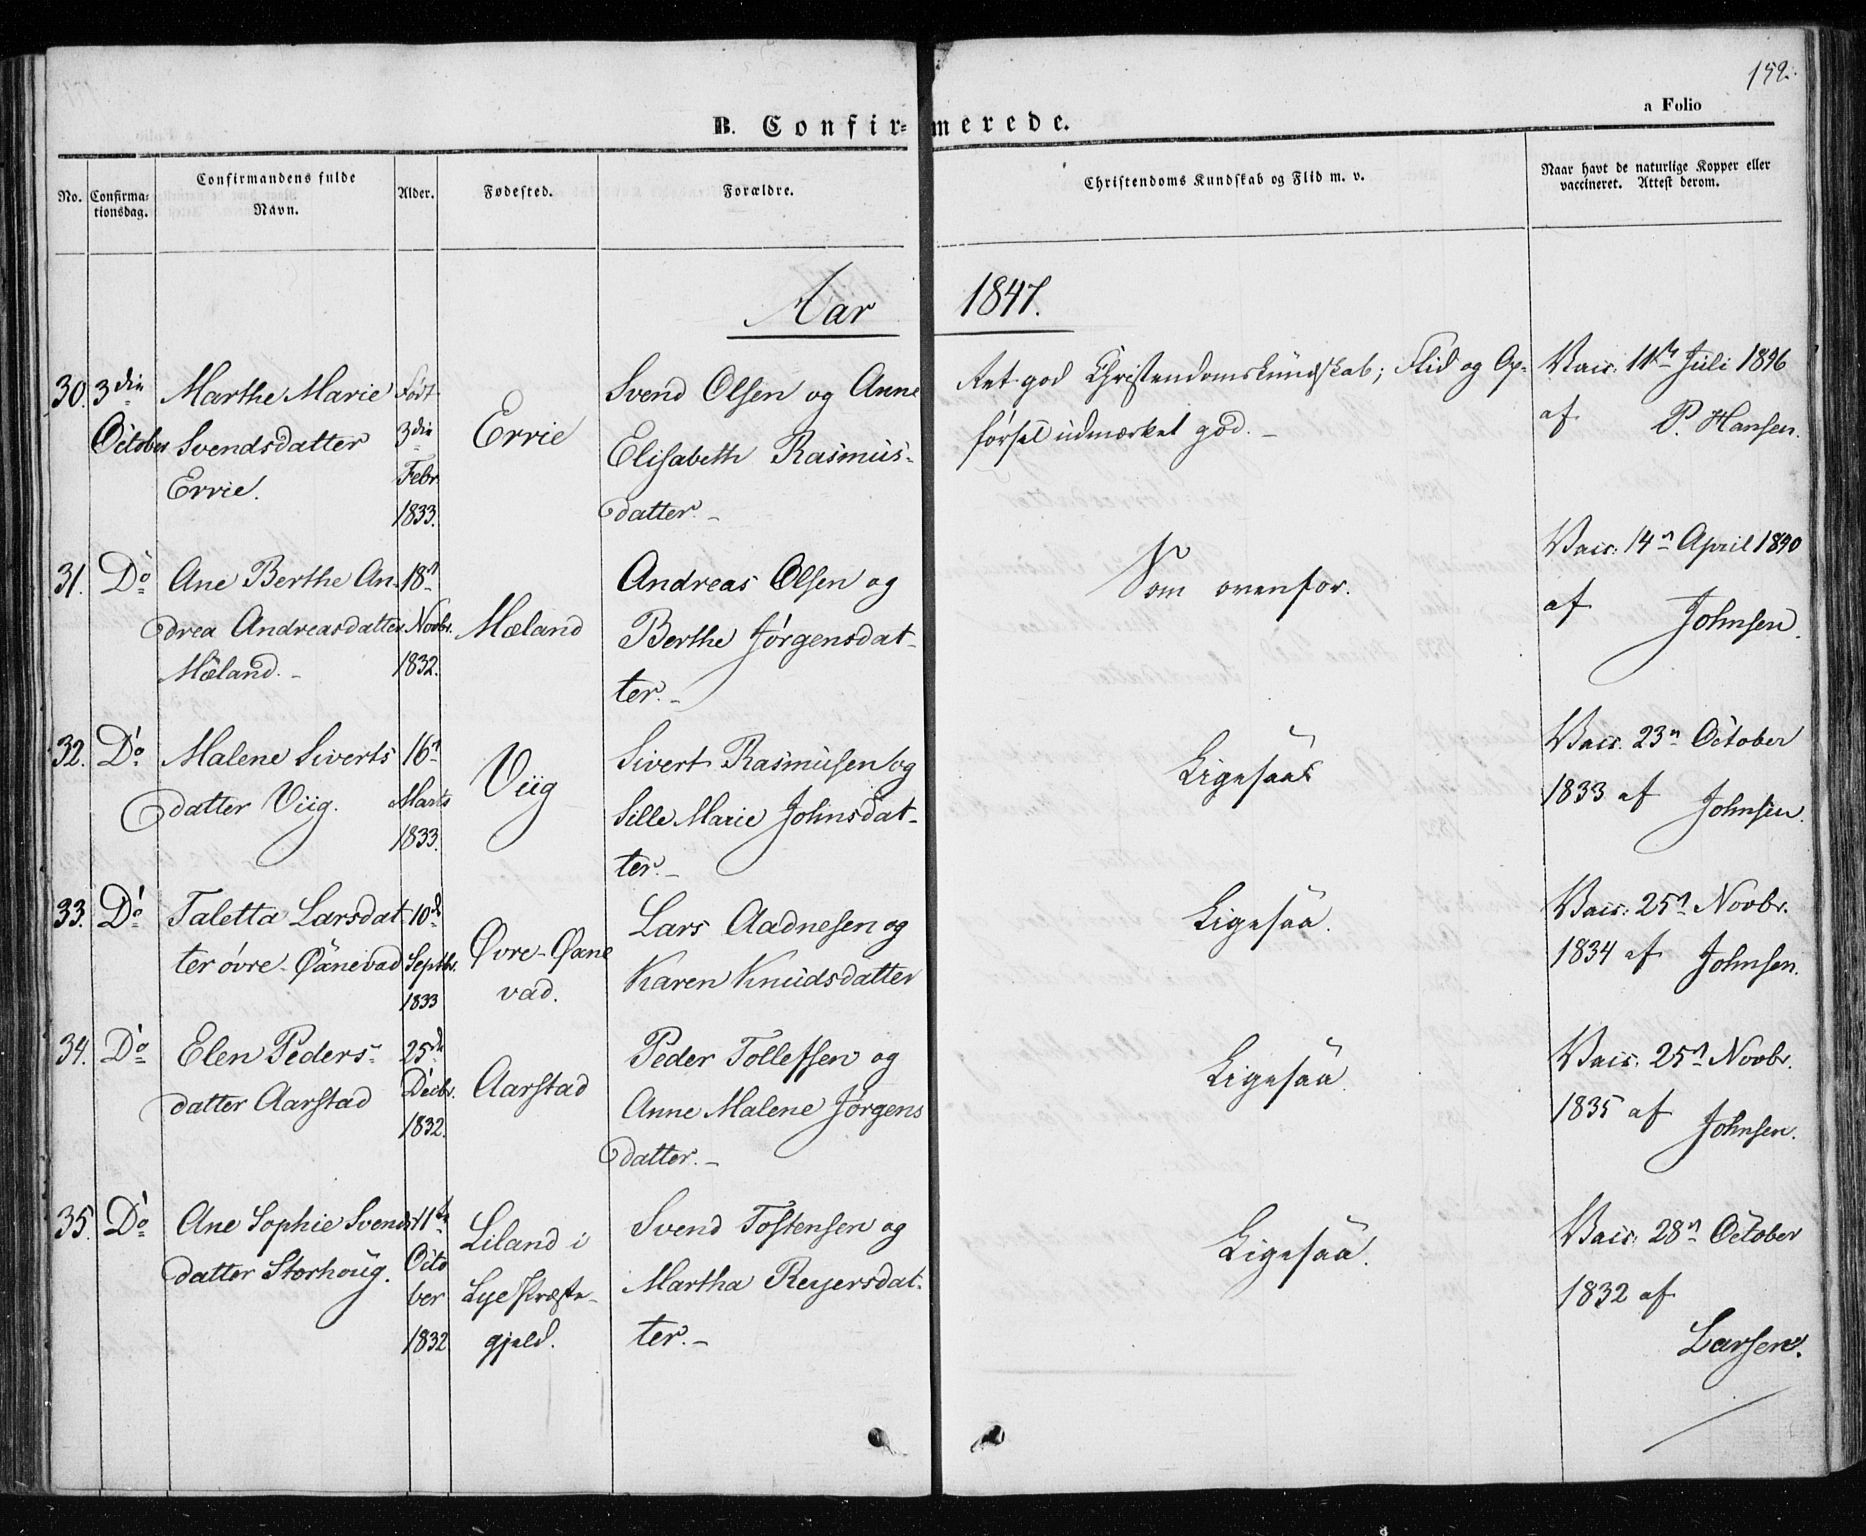 152.
a Folio
B. Confir- merede.
No.
Confirma-
tionsdag.
Confirmandens fulde
Navn.
Alder.
Fødested.
Forældre.
Christendoms Kundskab og Flid m. v.
Naar havt de naturlige Kopper eller
vaccineret. Attest derom.
Aar 1847.
30. 3die
October
Marthe Marie
Svendsdatter
Errie.
Født
3die
Febr
1833.
Errie
Svend Olsen og Anne
Elisabeth Rasmus-
datter. -
god Christendomskundskab; Flid og Op-
førsel udmærket god. -
Vacc. 11te Juli 1846
af P. Hansen.
31. Do
Ane Berthe An-
drea Andreasdatter
Mæland. -
18n
Novbr.
1832.
Mæland
Andreas Olsen og
Berthe Jørgensdat-
ter. -
Som ovenfor.
Vacc. 14n April 1840
af Johnsen.
32. Do
Malene Siverts
datter Viig.
16n
Marts
1833.
Viig
Sivert Rasmusen og
Sille Marie Johnsdat-
ter. -
Ligesaa.
Vacc. 23n October
1833 af Johnsen.
33. Do
Taletta Larsdat
ter øvre-Øänevad
10de
Septbr.
1833
Øvre-Øane
vad.
Lars Aadnesen og
Karen Knudsdatter
Ligesaa.
Vacc: 25n Novbr.
1834 af Johnsen.
34. Do
Elen Peders-
datter Aarstad
25de
Decbr.
1832.
Aarstad
Peder Tollefsen og
Anne Malene Jørgens
datter. -
Ligesaa.
Vacc: 25n Novbr.
1835 af Johnsen.
35. Do
Ane Sophie Svends
datter Storhoug.
11te
Octo
ber
1832
Liland i
Lye Præste-
gjeld.
Svend Tostensen og
Martha Reyersdat-
ter. -
Ligesaa.
Vacc: 28n October
1832 af
Larsen.